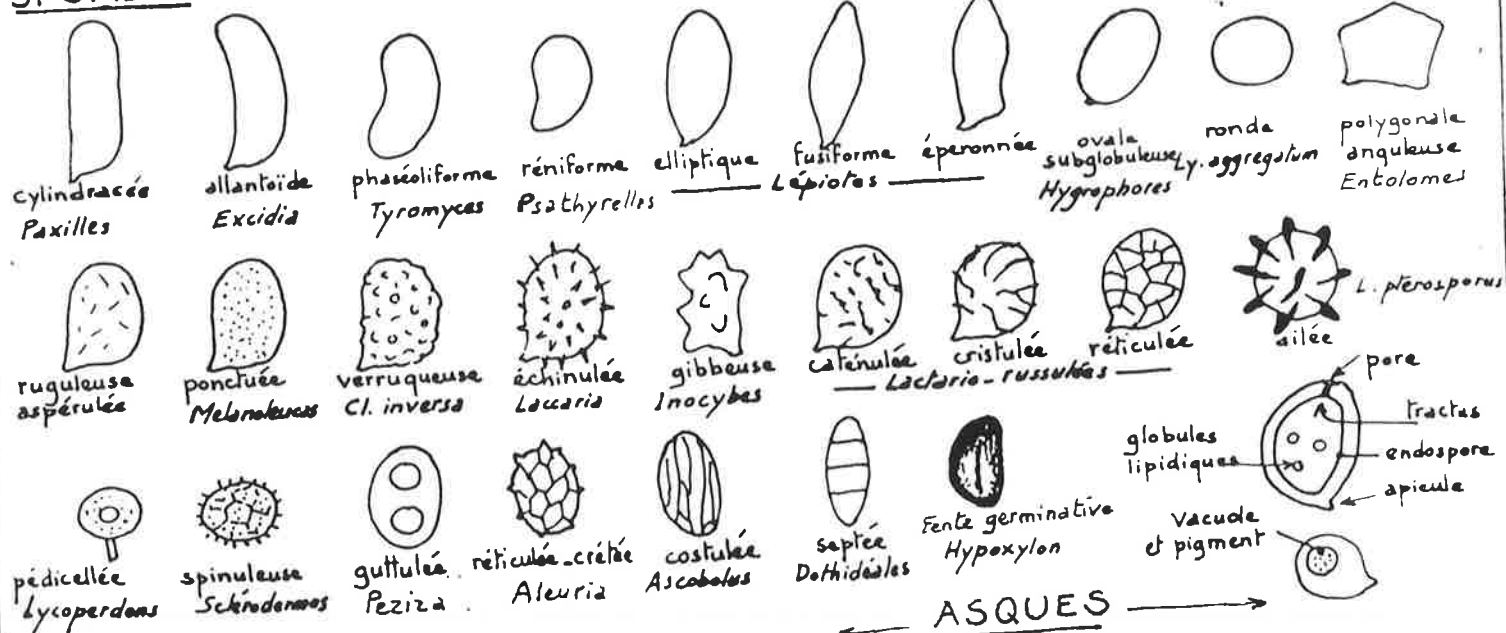 cylindracée
Paxilles
allantoïde
Excidia
phaséoliforme
Tyromyces
réniforme
Psathyrelles
elliptique
fusiforme
éperonnée
Lépiotes
ovale
subglobuleuse
Hygrophores
ronde
Ly. aggregatum
polygonale
anguleuse
Entolomes
ruguleuse
aspérulée
ponctuée
Melanoleucas
verruqueuse
Cl. inversa
échinulée
Laccaria
gibbeuse
Inocybes
caténulée
cristulée
réticulée
Lactario-russulées
ailée
L. pterosporus
pore
tractus
endospore
apicule
globules
lipidiques
vacuole
et pigment
pédicellée
Lycoperdons
spinuleuse
Sclérodermes
guttulée
Peziza
réticulée-crêtée
Aleuria
costulée
Ascobolus
septée
Dothidéales
Fente germinative
Hypoxylon
ASQUES